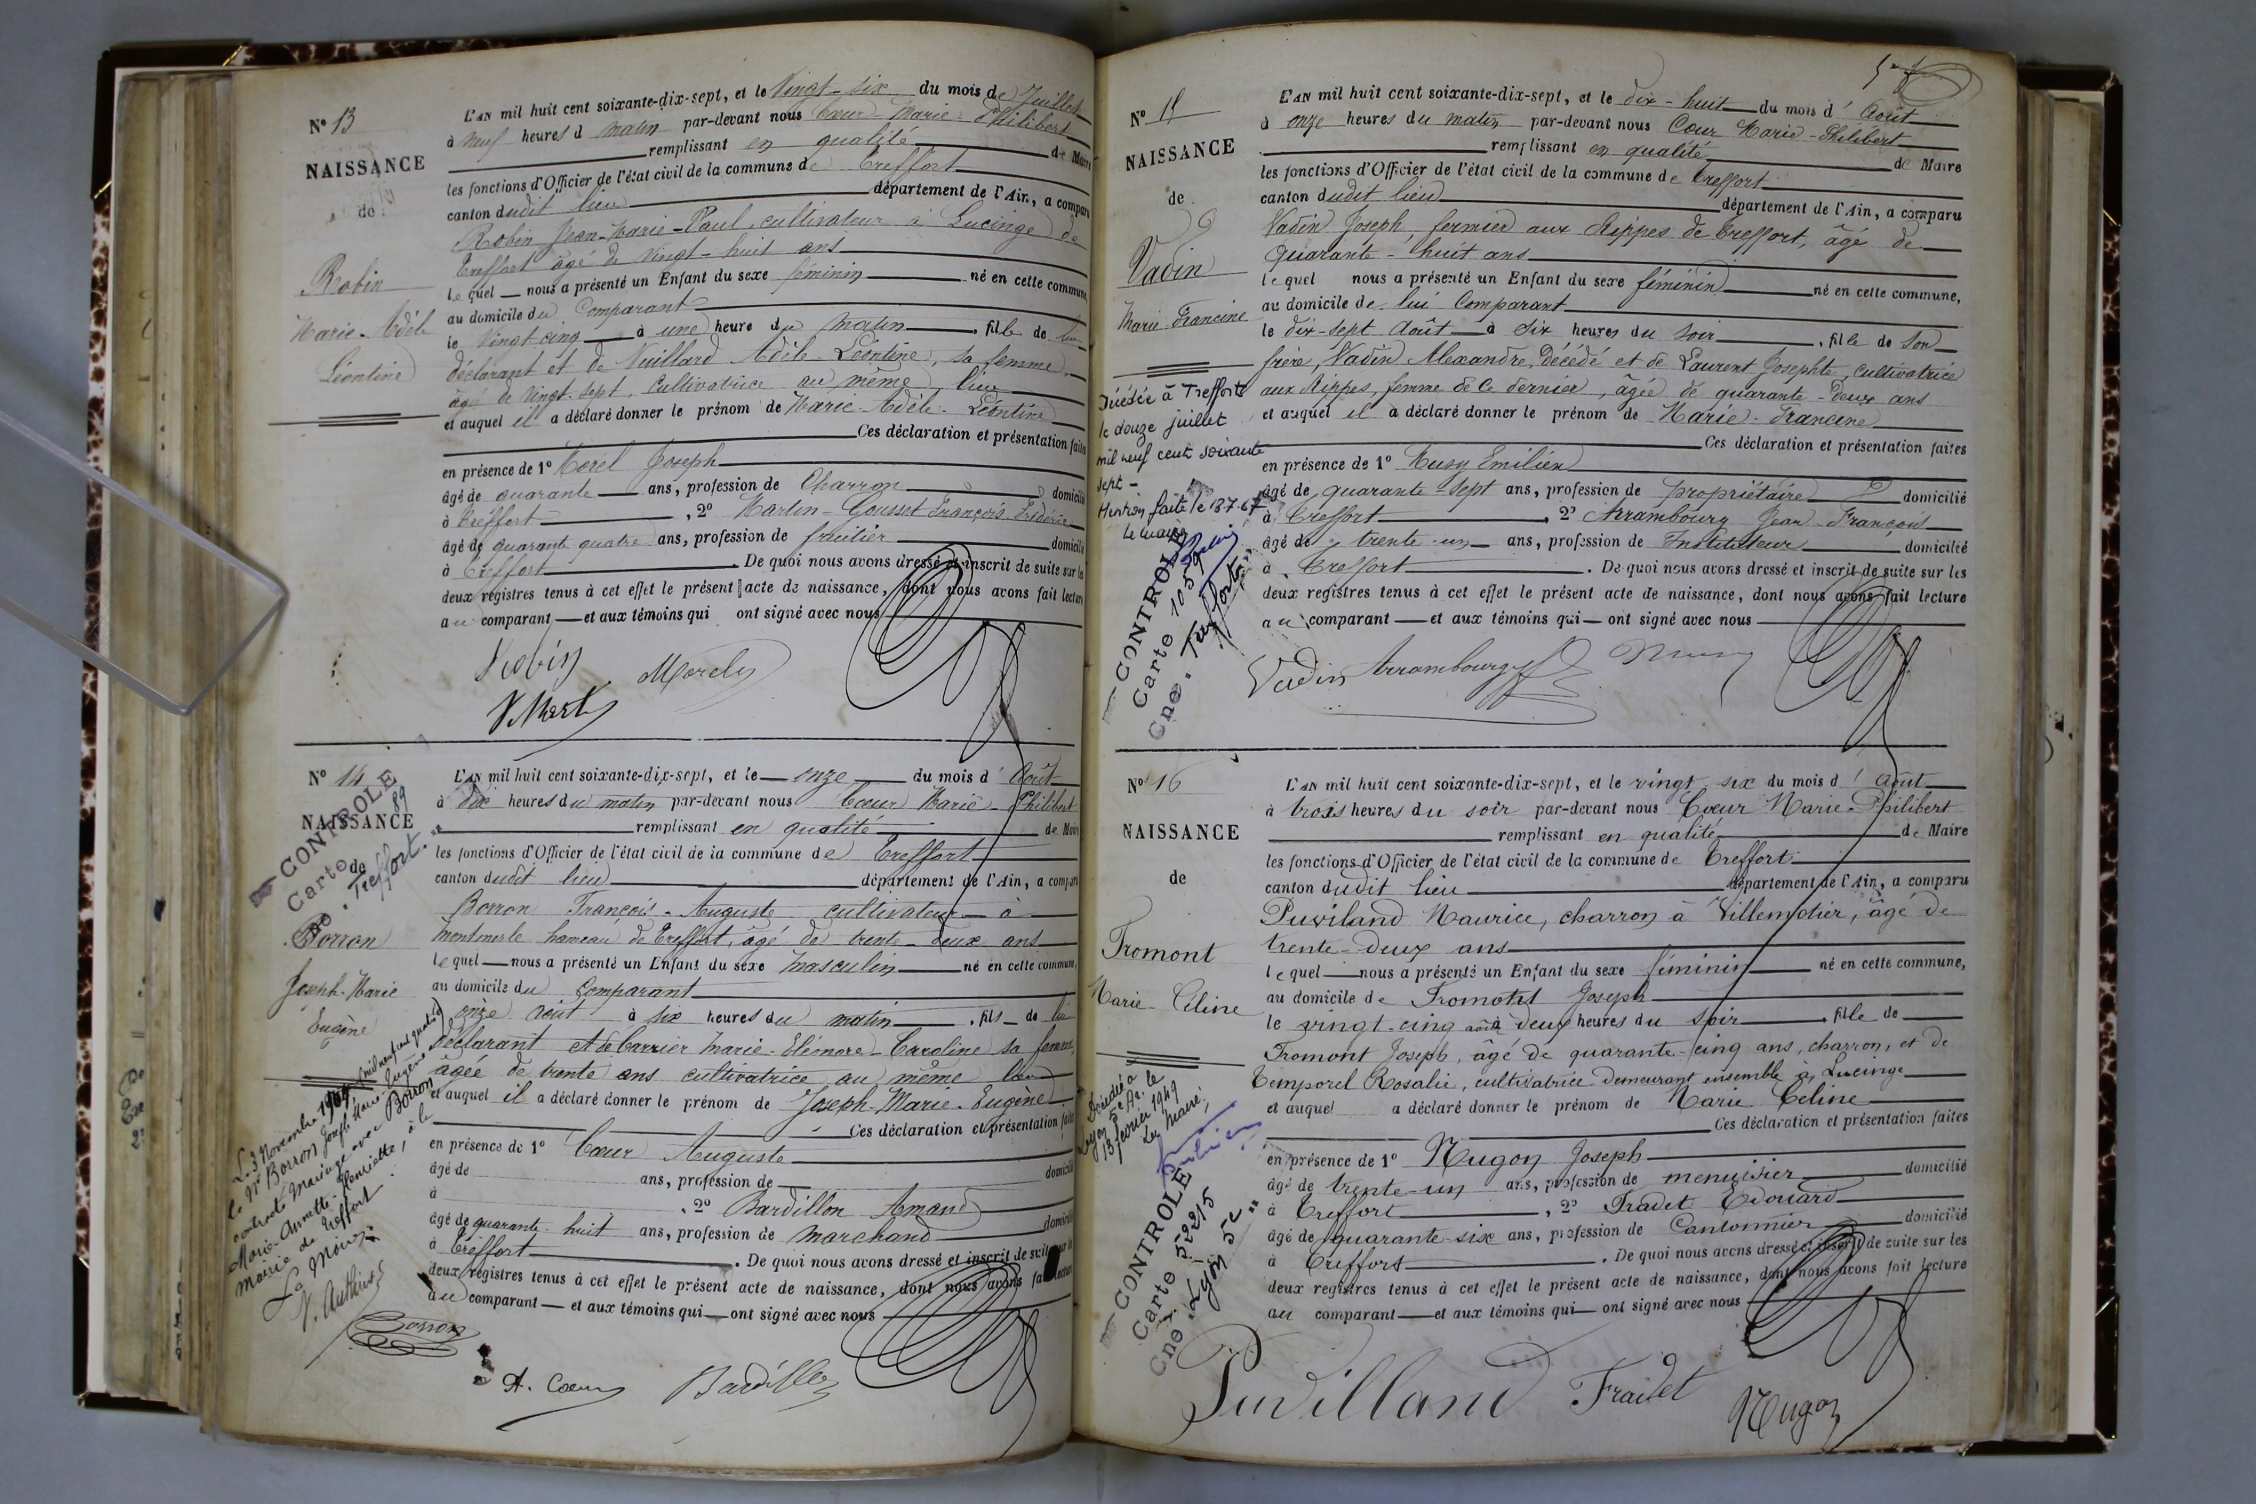 Nº 13
NAISSANCE
de
Robin
Marie-Adèle
Léontine
L'AN mil huit cent soixante-dix-sept, et le Vingt-six du mois de Juillet
à neuf heures d matin par-devant nous Cœur Marie Philibert
remplissant en qualité de Maire
les fonctions d'Officier de l'état civil de la commune de Treffort
canton dudit lieu département de l'Ain, a comparu
Robin Jean-Marie-Paul, cultivateur à Lucinge de
Treffort âgé de vingt-huit ans
lequel nous a présenté un Enfant du sexe féminin né en cette commune,
au domicile du Comparant
le vingt cinq à une heure du matin, fille de lui
déclarant et de Vuillard Adèle-Léontine, sa femme,
âgée de vingt-sept, cultivatrice au même lieu
et auquel il a déclaré donner le prénom de Marie-Adèle-Léontine
Ces déclaration et présentation faites
en présence de 1º Morel Joseph
âgé de quarante ans, profession de Charron domicilié
à Treffort, 2º Martin-Gousset François Frédéric
âgé de quarante quatre ans, profession de domicilié
à Treffort. De quoi nous avons dressé et inscrit de suite sur les
deux registres tenus à cet effet le présent acte de naissance, dont nous avons fait lecture
au comparant et aux témoins qui ont signé avec nous
Robin Morel
Nº 14
NAISSANCE
de
CONTROLE
Carte 89
Treffort
Borron
Joseph-Marie
Eugène
Le 3 Novembre 1904 mil neuf cent quatre
le Nd Borron Joseph Marie Eugène
contracté mariage avec Borron
Marie-Annette-Henriette, à la
mairie de Treffort
Le Maire
L'AN mil huit cent soixante-dix-sept, et le onze du mois d'Août
à dix heures du matin par-devant nous Cœur Marie-Philibert
remplissant en qualité de Maire
les fonctions d'Officier de l'état civil de la commune de Treffort
canton dudit lieu département de l'Ain, a comparu
Borron François-Auguste cultivateur à
Montmerle hameau de Treffort, âgé de trente-deux ans
lequel nous a présenté un Enfant du sexe masculin né en cette commune,
au domicile du Comparant
onze août à six heures du matin, fils de lui
déclarant et de Carrier Marie-Eléonore-Caroline sa femme,
âgée de trente ans cultivatrice au même lieu
et auquel il a déclaré donner le prénom de Joseph-Marie-Eugène
Ces déclaration et présentation faites
en présence de 1º Cœur Auguste
âgé de ans, profession de domicilié
à, 2º Bardillon Amand
âgé de quarante-huit ans, profession de marchand domicilié
à Treffort. De quoi nous avons dressé et inscrit de suite sur les
deux registres tenus à cet effet le présent acte de naissance, dont nous avons fait lecture
au comparant et aux témoins qui ont signé avec nous
Borron
A. Cœur Bardillon
Nº 15
NAISSANCE
de
Vadin
Marie-Francine
Décédée à Treffort
le douze juillet
mil neuf cent soixante
sept -
Mention faite le 13-7-67
Le Maire
CONTROLE
Carte 1059
Cne. Treffort
L'AN mil huit cent soixante-dix-sept, et le dix-huit du mois d'Août
à onze heures du matin par-devant nous Cœur Marie-Philibert
remplissant en qualité de Maire
les fonctions d'Officier de l'état civil de la commune de Treffort
canton dudit lieu département de l'Ain, a comparu
Vadin Joseph, fermier aux Rippes de Treffort, âgé de
quarante-huit ans
lequel nous a présenté un Enfant du sexe féminin né en cette commune,
au domicile de lui Comparant
le dix-sept Août à six heures du soir, fille de son
frère, Vadin Alexandre, Décédé et de Laurent Josephte, cultivatrice
aux Rippes, femme de ce dernier, âgée de quarante-deux ans
et auquel il a déclaré donner le prénom de Marie-Francine
Ces déclaration et présentation faites
en présence de 1º Musy Emilien
âgé de quarante-sept ans, profession de propriétaire domicilié
à Treffort, 2º Arrambourg Jean-François
âgé de trente-un ans, profession de Instituteur domicilié
à Treffort. De quoi nous avons dressé et inscrit de suite sur les
deux registres tenus à cet effet le présent acte de naissance, dont nous avons fait lecture
au comparant et aux témoins qui ont signé avec nous
Vadin Arrambourg Musy
Nº 16
NAISSANCE
de
Fromont
Marie-Céline
Décédée à
Lyon 5e Ar. le
13 février 1949
Le Maire,
CONTROLE
Carte 52215
Cne. Lyon 5e
L'AN mil huit cent soixante-dix-sept, et le vingt six du mois d'Août
à trois heures du soir par-devant nous Cœur Marie-Philibert
remplissant en qualité de Maire
les fonctions d'Officier de l'état civil de la commune de Treffort
canton dudit lieu département de l'Ain, a comparu
Puvilland Maurice, charron à Villemotier, âgé de
trente-deux ans
lequel nous a présenté un Enfant du sexe féminin né en cette commune,
au domicile de Fromont Joseph
le vingt-cinq août à deux heures du soir, fille de
Fromont Joseph, âgé de quarante-cinq ans, charron, et de
Temporel Rosalie, cultivatrice demeurant ensemble à Lucinge
et auquel a déclaré donner le prénom de Marie Céline
Ces déclaration et présentation faites
en présence de 1º Nugon Joseph
âgé de trente-un ans, profession de menuisier domicilié
à Treffort, 2º Fradet Edouard
âgé de quarante-six ans, profession de Cantonnier domicilié
à Treffort. De quoi nous avons dressé et inscrit de suite sur les
deux registres tenus à cet effet le présent acte de naissance, dont nous avons fait lecture
au comparant et aux témoins qui ont signé avec nous
Puvilland Fradet Nugon